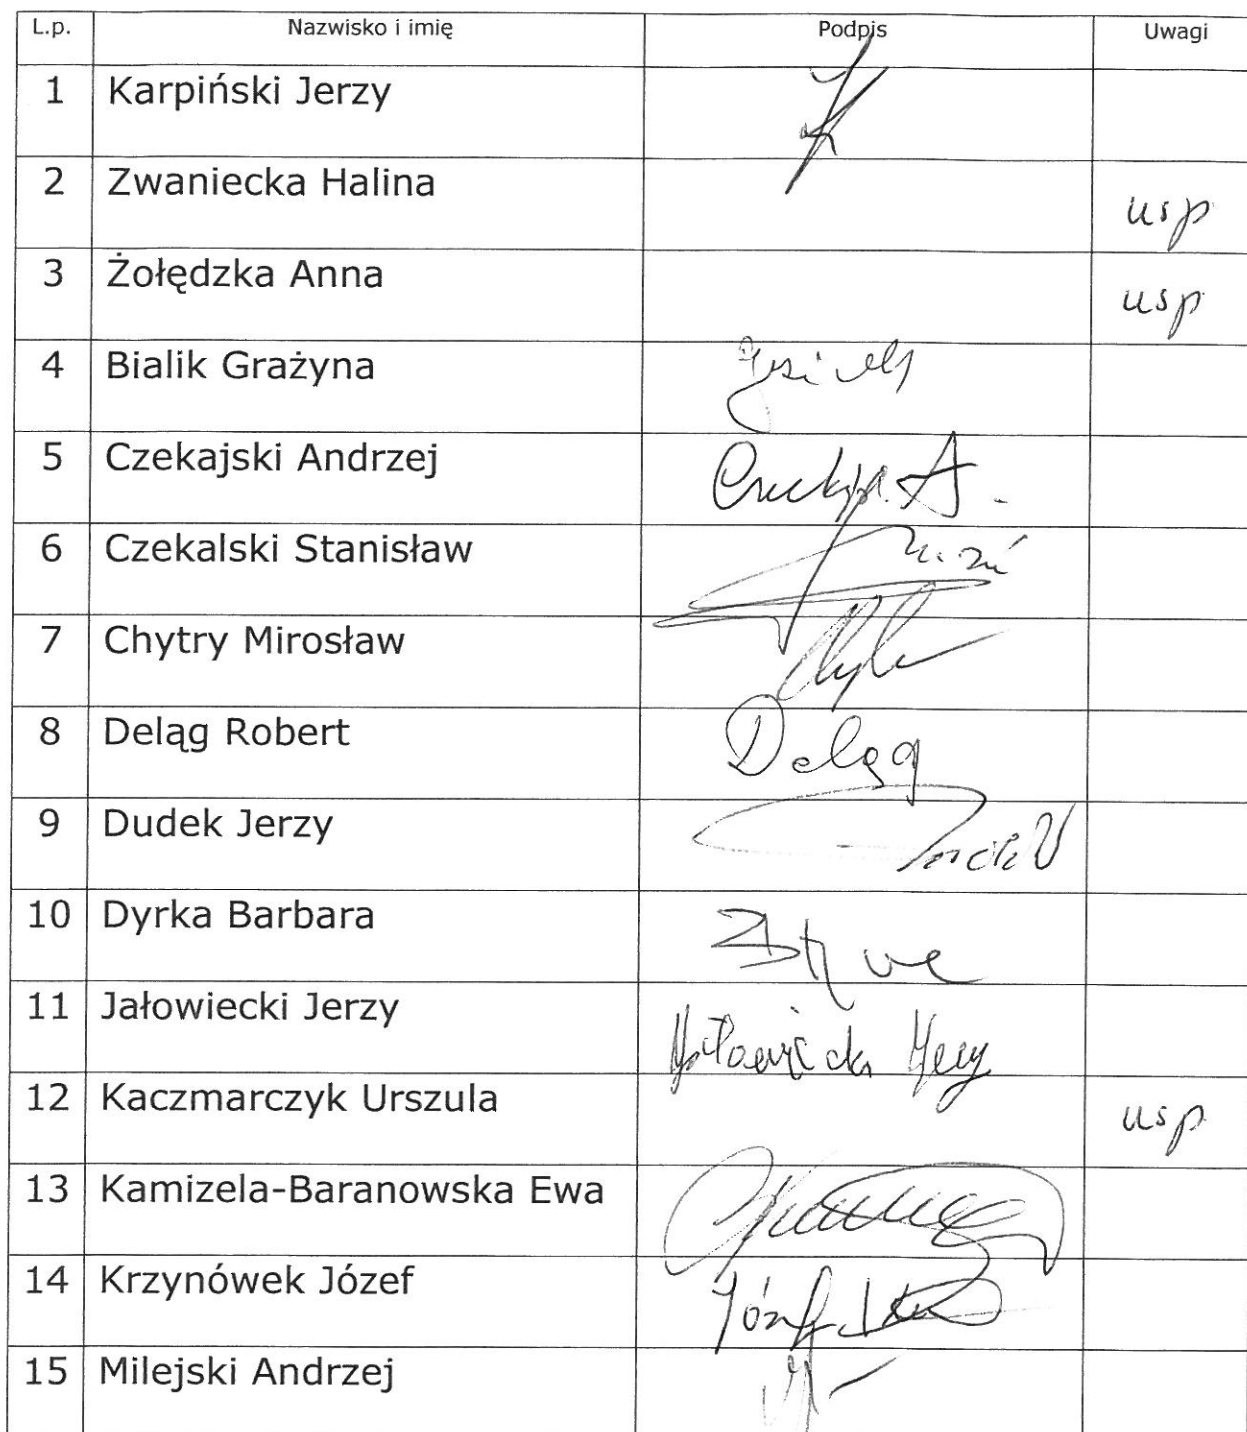 L.p. Nazwisko i imię Podpis Uwagi
1 Karpiński Jerzy
2 Zwaniecka Halina usp
3 Żołędzka Anna usp
4 Bialik Grażyna
5 Czekajski Andrzej
6 Czekalski Stanisław
7 Chytry Mirosław
8 Deląg Robert Deląg
9 Dudek Jerzy
10 Dyrka Barbara
11 Jałowiecki Jerzy
12 Kaczmarczyk Urszula usp
13 Kamizela-Baranowska Ewa
14 Krzynówek Józef Józef
15 Milejski Andrzej